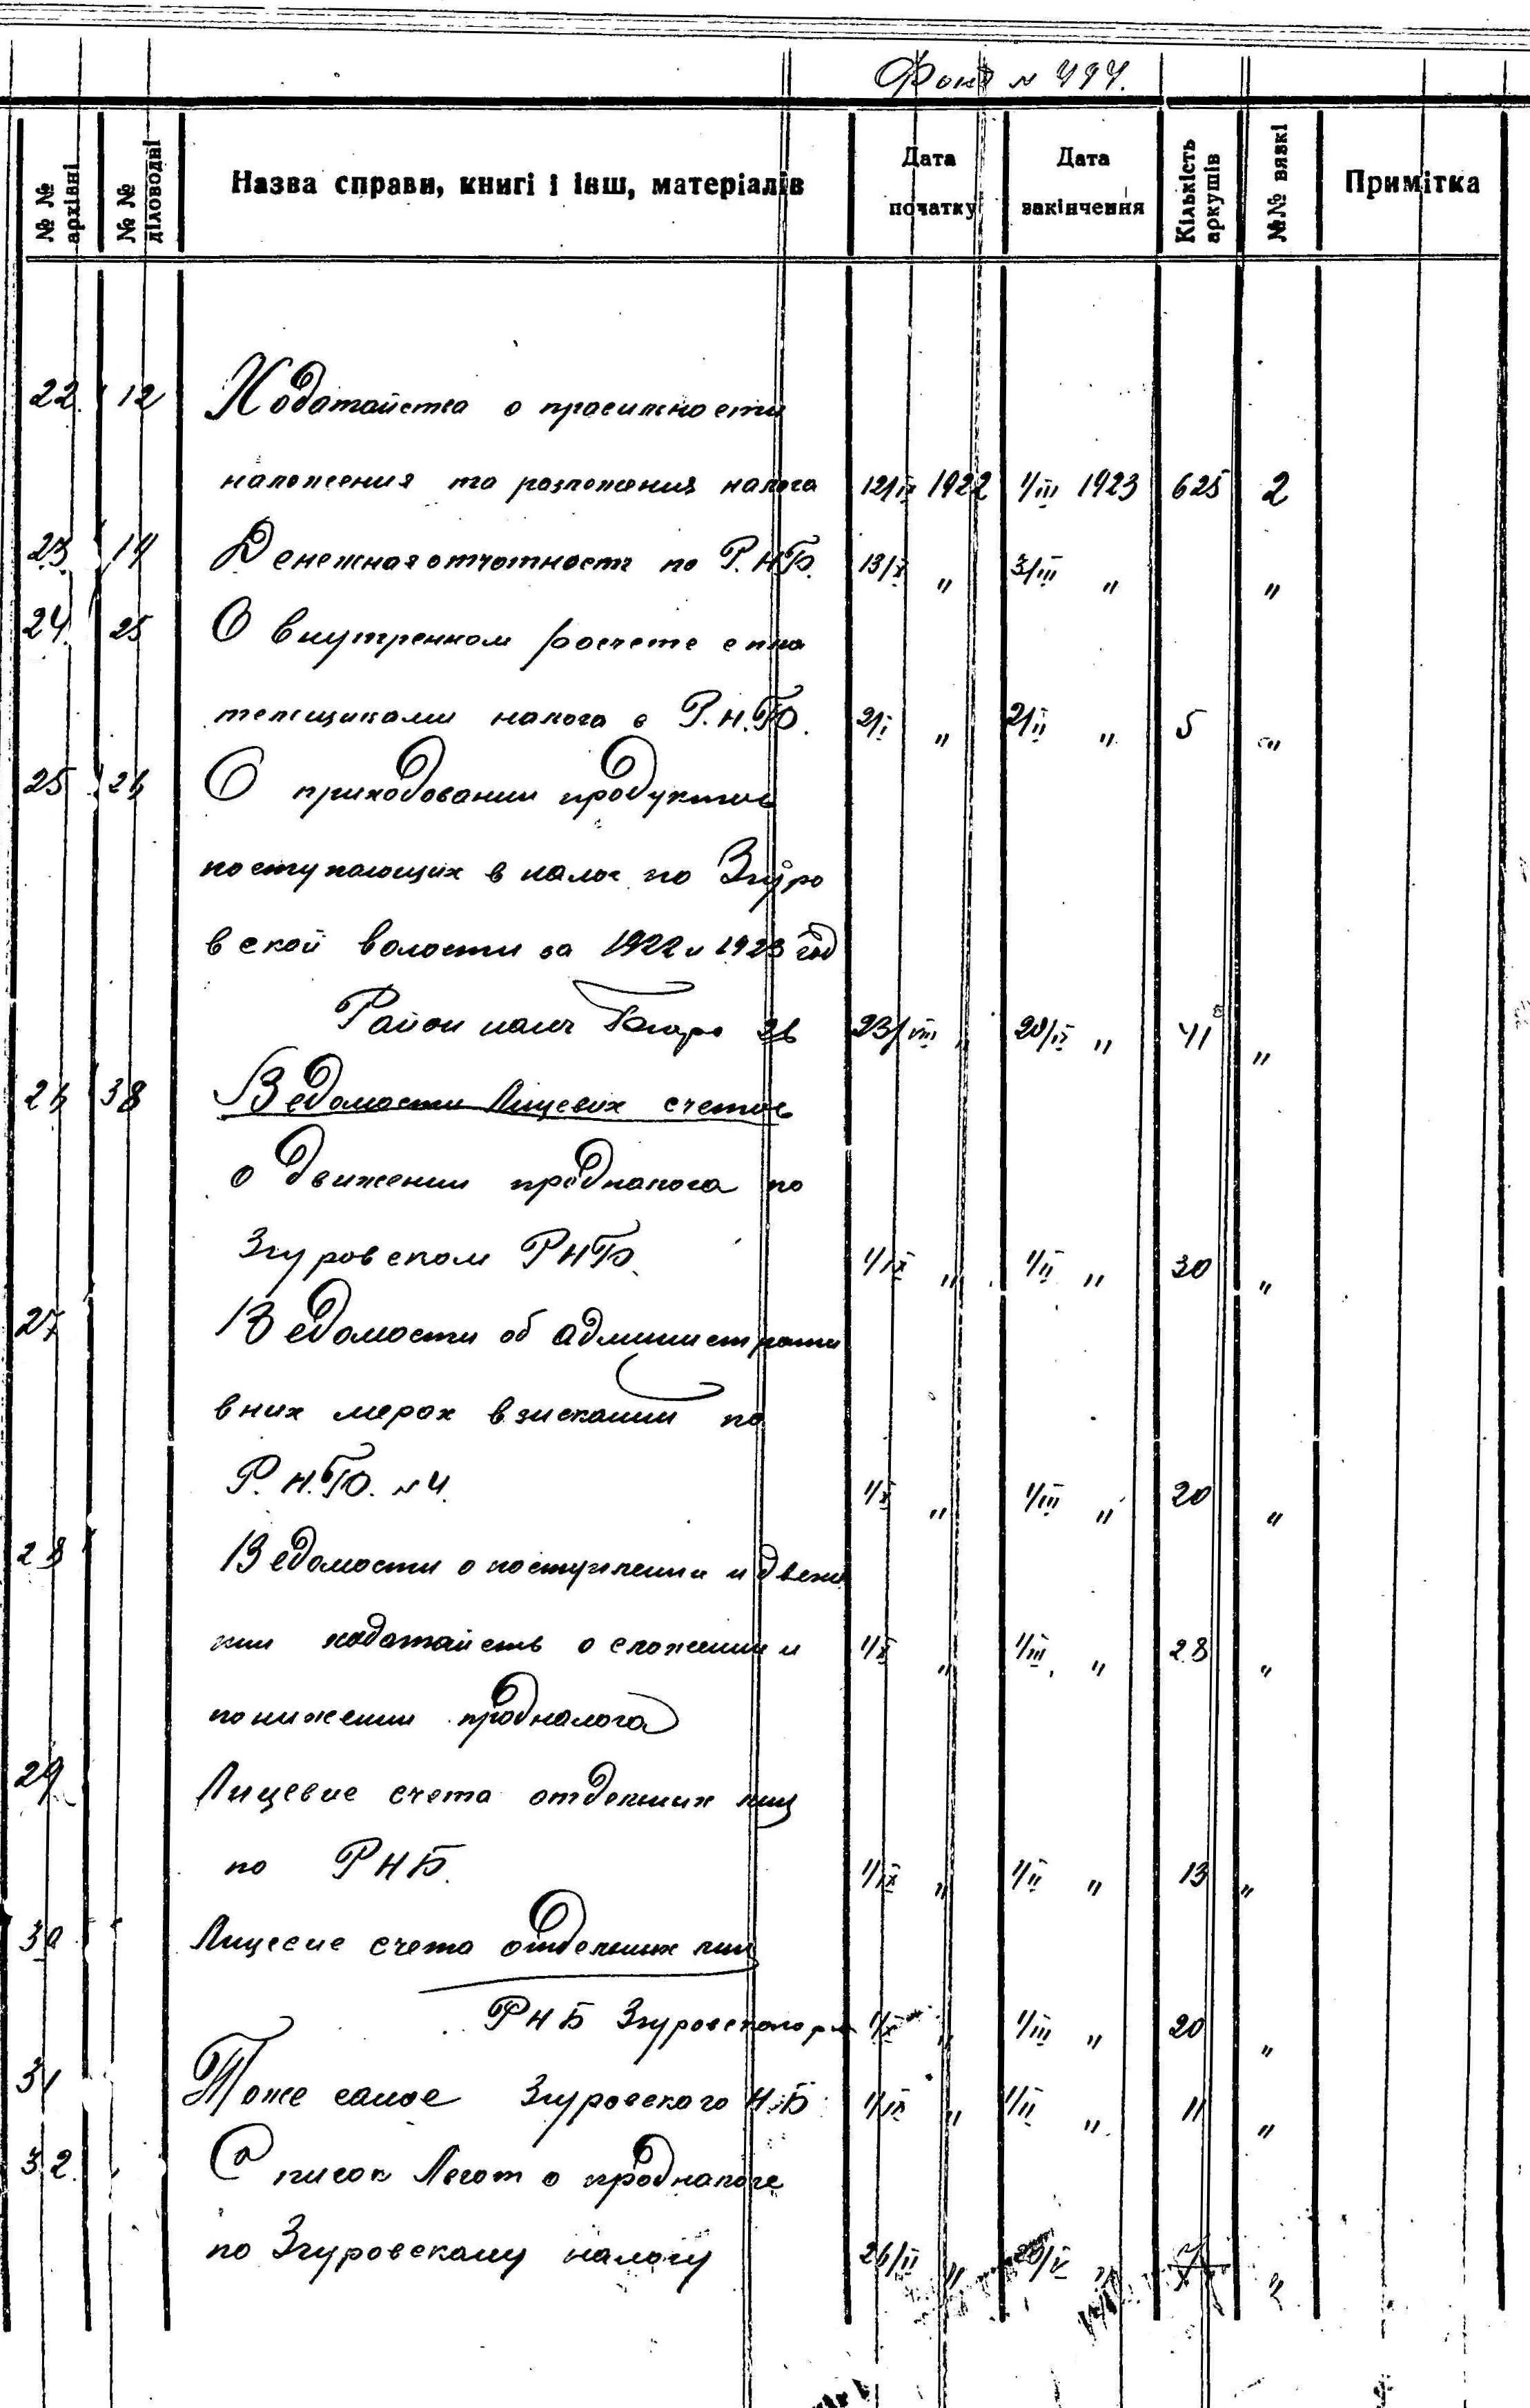 Фонд №
№№ архівні
№№ діловодні
Назва справи, книгі і інш, матеріалів
Дата початку
Дата закінчення
Кількість аркушів
№№ вязкі
Примітка
22 12 Ходатайства о правильности
наложения та разложения налога 12/IX 1922 1/III 1923 625 2
23 14 Денежная отчотность по Р.Н.Б. 13/X " 3/III " "
24 25 О внутренном росчете с пла
тельщиками налога в Р.Н.Б. 2/I " 2/II " 5 "
25 26 О приходовании продуктов
поступающих в налог по Згуро
вской волости за 1922 и 1923 год
Район налг Бюро 26 23/VIII " 20/IX " 41 "
26 38 Ведомости Лицевих счетов
о движении продналога по
Згуровском РНБ. 1/IX " 1/II " 30 "
27 Ведомости об администрати
вних мерах взискании по
Р.Н.Б. №4. 1/X " 1/III " 20 "
28 Ведомости о поступлении и движе
нии ходатайств о сложении и 1/X " 1/III " 28 "
понижении продналога
29 Лицевие счета отдельних лиц
по РНБ. 1/IX " 1/II " 13 "
30 Лицевие счета отдельних лиц
РНБ Згуровского 1/X " 1/III " 20 "
31 Тоже самое Згуровского Н.Б. 1/IX " 1/II " 11 "
32 Список Льгот о продналоге
по Згуровскому налогу 26/II " "